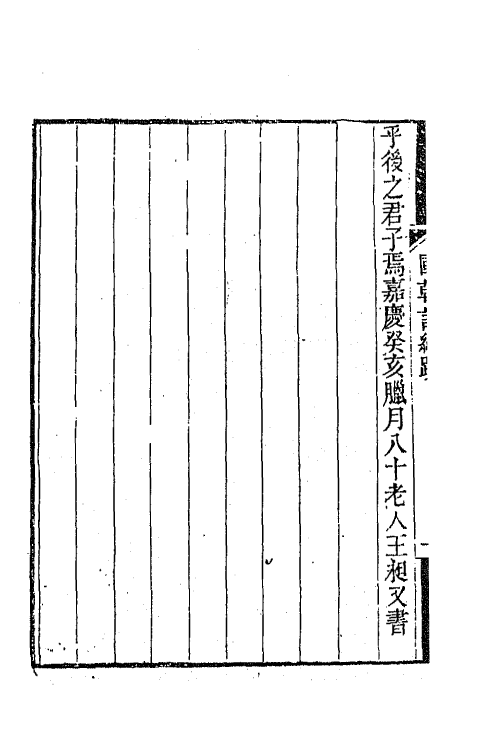 國朝詞綜跋
一
乎後之君子焉嘉慶癸亥臘月八十老人王昶又書